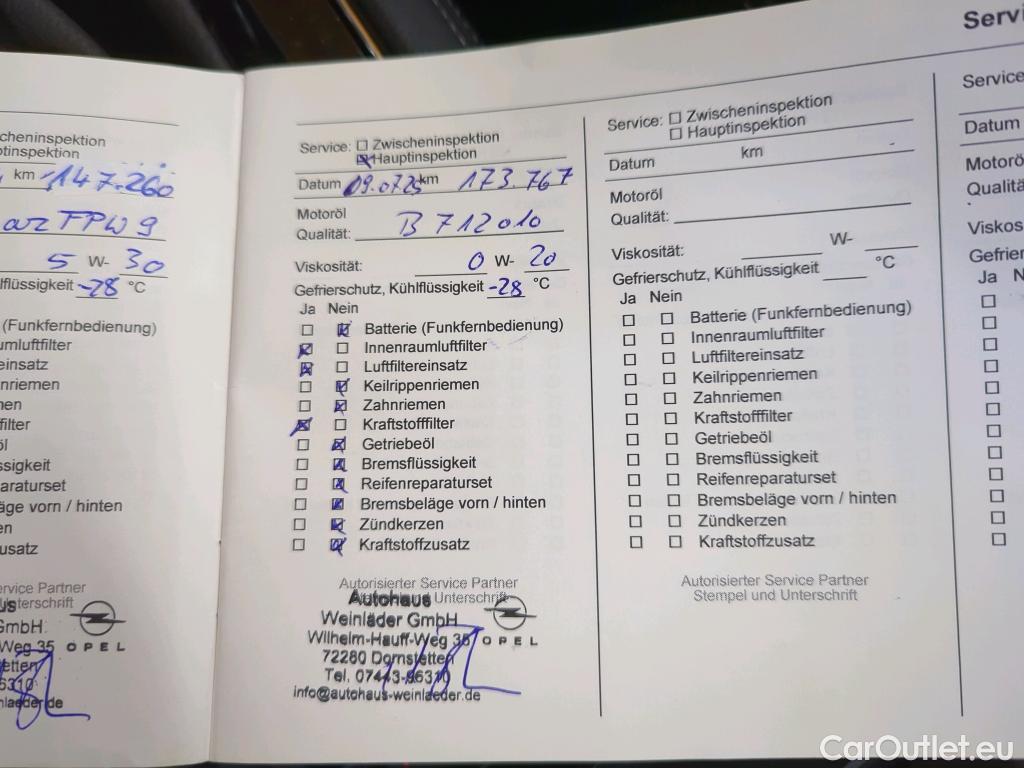 Servi
cheninspektion
ptinspektion
km 147.260
arz TPW 9
5 W- 30
lflüssigkeit -28 °C
(Funkfernbedienung)
umluftfilter
einsatz
nriemen
men
filter
öl
ssigkeit
paraturset
läge vorn / hinten
en
usatz
ervice Partner
Unterschrift
us
GmbH
Weg 35
OPEL
etten
6310
nlaeder.de
Service: Zwischeninspektion
Hauptinspektion
Datum 09.07.25 km 173.767
Motoröl
Qualität: B 712010
Viskosität: 0 W- 20
Gefrierschutz, Kühlflüssigkeit -28 °C
Ja Nein
Batterie (Funkfernbedienung)
Innenraumluftfilter
Luftfiltereinsatz
Keilrippenriemen
Zahnriemen
Kraftstofffilter
Getriebeöl
Bremsflüssigkeit
Reifenreparaturset
Bremsbeläge vorn / hinten
Zündkerzen
Kraftstoffzusatz
Autorisierter Service Partner
Unterschrift
Autohaus
Weinläder GmbH
Wilhelm-Hauff-Weg 35
OPEL
72280 Dornstetten
Tel. 07443-96310
info@autohaus-weinlaeder.de
Service: Zwischeninspektion
Hauptinspektion
Datum km
Motoröl
Qualität:
Viskosität: W-
Gefrierschutz, Kühlflüssigkeit °C
Ja Nein
Batterie (Funkfernbedienung)
Innenraumluftfilter
Luftfiltereinsatz
Keilrippenriemen
Zahnriemen
Kraftstofffilter
Getriebeöl
Bremsflüssigkeit
Reifenreparaturset
Bremsbeläge vorn / hinten
Zündkerzen
Kraftstoffzusatz
Autorisierter Service Partner
Stempel und Unterschrift
Service
Datum
Motorö
Qualitä
Viskos
Gefrier
Ja
CarOutlet.eu